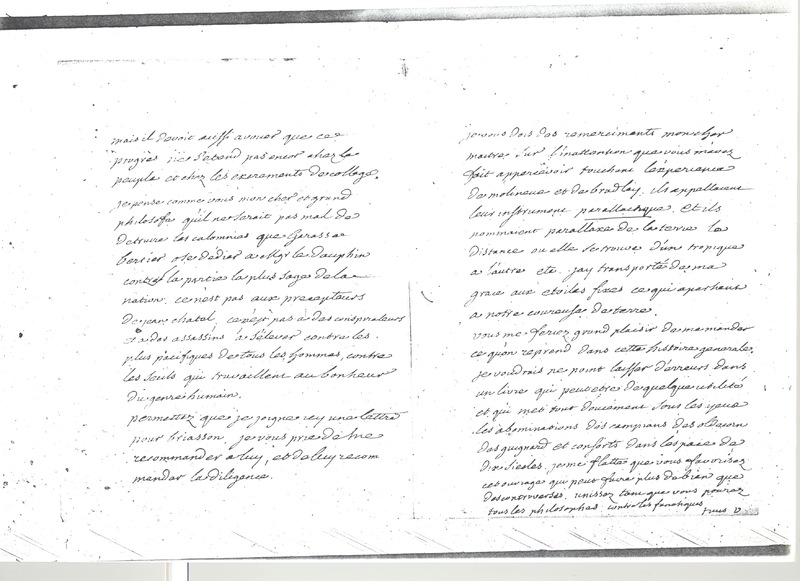 mais il devoit aussi avouer que ce
progrès ne s'etend pas encor chez le
peuple et chez les excrements de college.
je pense comme vous mon cher et grand
philosofe qu'il ne serait pas mal de
detruire les calomnies que Garasse
bertier ose dédier a Mgr le dauphin
contre la partie la plus sage de la
nation. ce n'est pas aux precepteurs
de jean chatel, ce n'est pas a des conspirateurs
et a des assassins a s'elever contre les
plus pacifiques de tous les hommes, contre
les seuls qui travaillent au bonheur
du genre humain.
permettez que je joigne icy une lettre
pour briasson. je vous prie de me
recommander a luy, et de luy recom
mander la diligence.
je vous dois des remerciments mon cher
maitre sur l'inattention que vous m'avez
fait appercevoir touchant l'experience
de molineux et de bradley. ils appellaient
leur instrument parallactique, et ils
nommaient parallaxe de la terre la
distance ou elle se trouve d'un tropique
a l'autre etc. j'ay transporté de ma
grace aux etoiles fixes ce qui apartient
a notre coureuse de terre.
vous me feriez grand plaisir de me mander
ce qu'on reprend dans cette histoire generale.
je voudrais ne point laisser d'erreurs dans
un livre qui peut etre de quelque utilité
et qui met tout doucement sous les yeux
les abominations des campians des oldecorn
des guignard et consorts dans l'espace de
dix siecles. je me flatte que vous favorisez
cet ouvrage qui peut faire plus de bien que
des controverses. unissez tant que vous pourez
tous les philosophes contre les fanatiques.